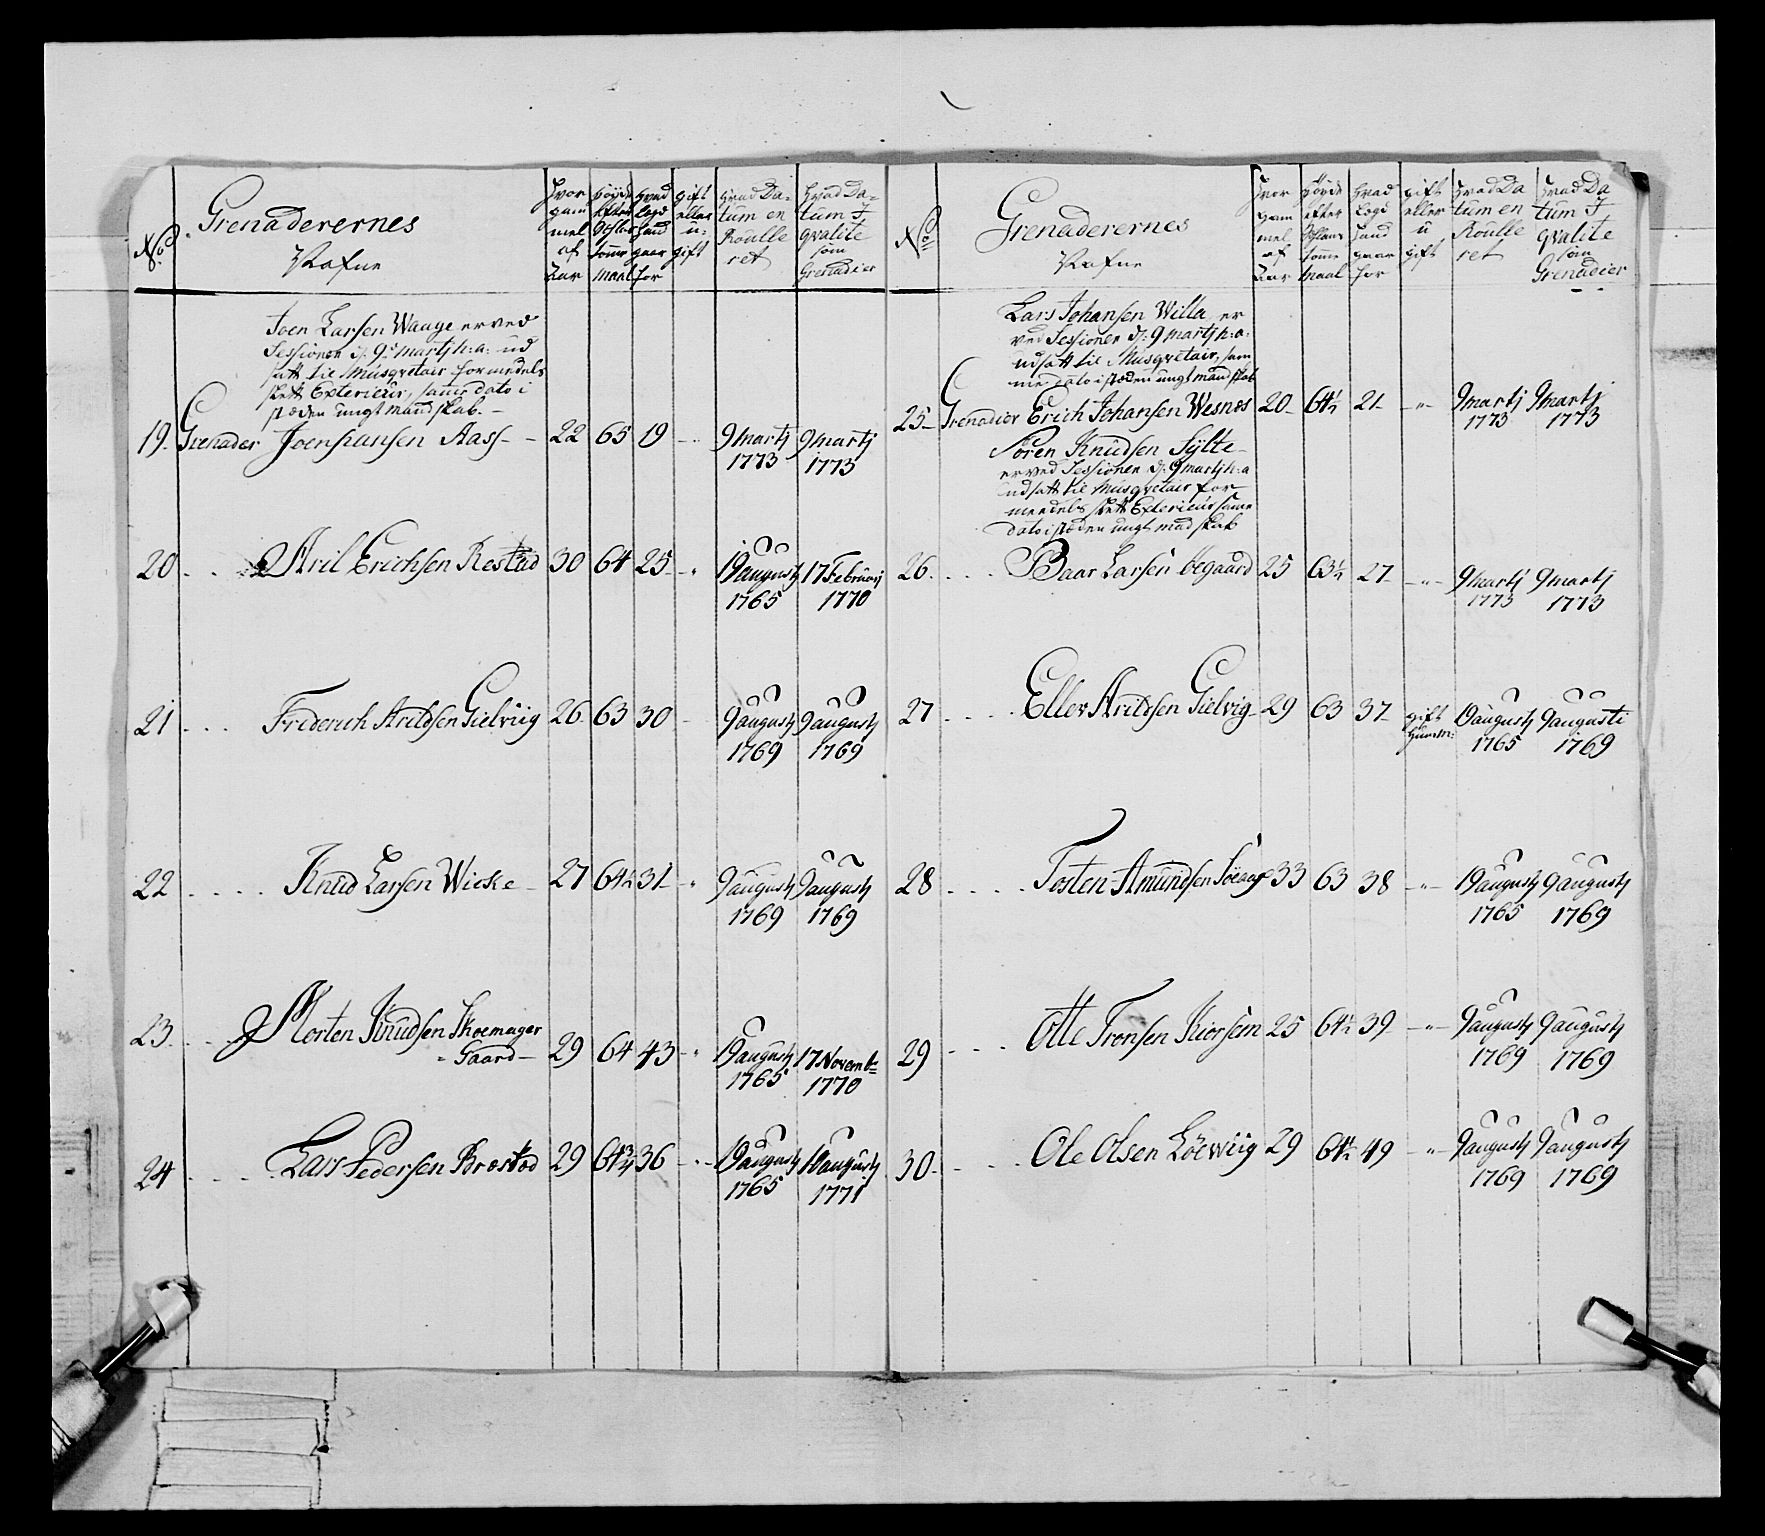 No
Grenaderernes
Nafne
Hvor gam mel af Aar
Høyde Efter Sessions Tomme Maal
Hvad Lægd hand gaar for
gift eller u: gift
Hvad Da- tum en Roulle ret
Hvad Da- tum I qvalite som Grenadier
Joen Larsen Waage er ved
Sessionen d: 9de martj h: a: ud
satt til Musqvetair formedelst
slett Exterieur, samme dato i
stæden ungt mandskab. -
19. Grenader Joen Hansen Aass - - 22 65 19 - 9 martj 1773 9 martj 1773
20 . . . Aril Erichsen Restad 30 64 25 - " 19 augustj 1765 17 Februarj 1770
21 . . . Friderich Arildsen Gielviig 26 63 30 - 9 augustj 1769 9 augustj 1769
22 . . . . Knud Larsen Wicke - 27 64½ 31 - " 9 augustj 1769 9 augustj 1769
23 . . . Morten Knudsen Skoemager
Gaard - 29 64 43 - " 19 augustj 1765 17 Novemb: 1770
24 . . . . Lars Pedersen Brestad 29 64¾ 36 - " - 19 augustj 1765 18 augustj 1771
No
Grenaderernes
Nafne
Hvor gam mel af Aar
Høyde Efter Tomme Maal
Hvad Lægd Hand gaar for
gift eller u gift
Hvad Da tum en Roulle ret
Hvad Da tum I qvalite som Grenadier
Lars Johansen Willa, er
ved Sessionen d: 9 martj h: a:
udsatt til Musqvetair, sam
me dato i stæden ungt mandskab
25 - Grenadier Erich Johansen Wesnes 20 - 64½ 21 - " - 9 martj 1773 9 martj 1773
Sören Knudsen Sylte
er ved Sessionen d: 9 martj h: a
udsatt til Musqvetair for
mendelst slett Exterieur samme
dato i stæden ungt mandskab
26 . . . . Baar Larsen Øegaard 25 63½ 27 - " - 9 martj 1773 9 martj 1773
27 . . . . Eller Arildsen Gielvig - 29 63 37 - gift 19 augustj 1765 9 augusti 1769
28 . . . . Tosten Amundsen 33 63 38 - " - 19 augustj 1765 9 augustj 1769
29 . . . Otte Tronsen Kiorsem 25 64½ 39 - " - 9 augustj 1769 9 augustj 1769
30 - . . . Ole Olsen Löewiig 29 64½ 49 - " 9 augustj 1769 9 augustj 1769